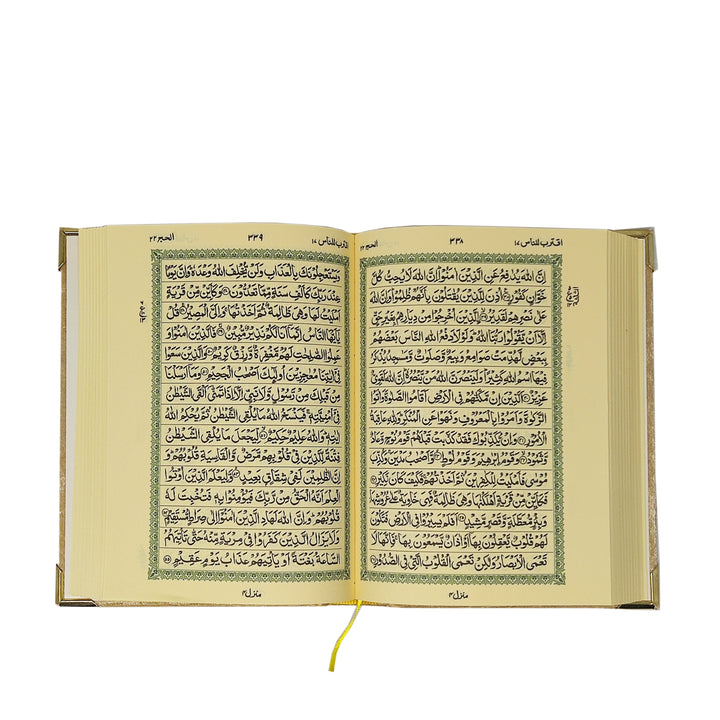 اقترب للناس ١٧
٣٣٨
الحج ٢٢
اِنَّ اللّٰهَ يُدٰفِعُ عَنِ الَّذِيْنَ اٰمَنُوْا اِنَّ اللّٰهَ لَا يُحِبُّ كُلَّ
خَوَّانٍ كَفُوْرٍ ۝ اُذِنَ لِلَّذِيْنَ يُقٰتَلُوْنَ بِاَنَّهُمْ ظُلِمُوْا وَاِنَّ اللّٰهَ
عَلٰى نَصْرِهِمْ لَقَدِيْرٌ ۝ الَّذِيْنَ اُخْرِجُوْا مِنْ دِيَارِهِمْ بِغَيْرِ حَقٍّ
اِلَّا اَنْ يَّقُوْلُوْا رَبُّنَا اللّٰهُ وَلَوْلَا دَفْعُ اللّٰهِ النَّاسَ بَعْضَهُمْ
بِبَعْضٍ لَّهُدِّمَتْ صَوَامِعُ وَبِيَعٌ وَّصَلَوٰتٌ وَّمَسٰجِدُ يُذْكَرُ
فِيْهَا اسْمُ اللّٰهِ كَثِيْرًا وَلَيَنْصُرَنَّ اللّٰهُ مَنْ يَّنْصُرُهٗ اِنَّ اللّٰهَ لَقَوِيٌّ
عَزِيْزٌ ۝ اَلَّذِيْنَ اِنْ مَّكَّنّٰهُمْ فِى الْاَرْضِ اَقَامُوا الصَّلٰوةَ وَاٰتَوُا
الزَّكٰوةَ وَاَمَرُوْا بِالْمَعْرُوْفِ وَنَهَوْا عَنِ الْمُنْكَرِ وَلِلّٰهِ عَاقِبَةُ
الْاُمُوْرِ ۝ وَاِنْ يُّكَذِّبُوْكَ فَقَدْ كَذَّبَتْ قَبْلَهُمْ قَوْمُ نُوْحٍ وَّعَادٌ
وَّثَمُوْدُ ۝ وَقَوْمُ اِبْرٰهِيْمَ وَقَوْمُ لُوْطٍ ۝ وَّاَصْحٰبُ مَدْيَنَ وَكُذِّبَ
مُوْسٰى فَاَمْلَيْتُ لِلْكٰفِرِيْنَ ثُمَّ اَخَذْتُهُمْ فَكَيْفَ كَانَ نَكِيْرِ ۝
فَكَاَيِّنْ مِّنْ قَرْيَةٍ اَهْلَكْنٰهَا وَهِيَ ظَالِمَةٌ فَهِيَ خَاوِيَةٌ عَلٰى عُرُوْشِهَا
وَبِئْرٍ مُّعَطَّلَةٍ وَّقَصْرٍ مَّشِيْدٍ ۝ اَفَلَمْ يَسِيْرُوْا فِى الْاَرْضِ فَتَكُوْنَ
لَهُمْ قُلُوْبٌ يَّعْقِلُوْنَ بِهَا اَوْ اٰذَانٌ يَّسْمَعُوْنَ بِهَا فَاِنَّهَا لَا
تَعْمَى الْاَبْصَارُ وَلٰكِنْ تَعْمَى الْقُلُوْبُ الَّتِيْ فِى الصُّدُوْرِ ۝
منزل ٤
اقترب للناس ١٧
٣٣٩
الحج ٢٢
وَيَسْتَعْجِلُوْنَكَ بِالْعَذَابِ وَلَنْ يُّخْلِفَ اللّٰهُ وَعْدَهٗ وَاِنَّ يَوْمًا
عِنْدَ رَبِّكَ كَاَلْفِ سَنَةٍ مِّمَّا تَعُدُّوْنَ ۝ وَكَاَيِّنْ مِّنْ قَرْيَةٍ
اَمْلَيْتُ لَهَا وَهِيَ ظَالِمَةٌ ثُمَّ اَخَذْتُهَا وَاِلَيَّ الْمَصِيْرُ ۝ قُلْ
يٰٓاَيُّهَا النَّاسُ اِنَّمَآ اَنَا لَكُمْ نَذِيْرٌ مُّبِيْنٌ ۝ فَالَّذِيْنَ اٰمَنُوْا وَ
عَمِلُوا الصّٰلِحٰتِ لَهُمْ مَّغْفِرَةٌ وَّرِزْقٌ كَرِيْمٌ ۝ وَالَّذِيْنَ سَعَوْا
فِيْٓ اٰيٰتِنَا مُعٰجِزِيْنَ اُولٰٓئِكَ اَصْحٰبُ الْجَحِيْمِ ۝ وَمَآ اَرْسَلْنَا
مِنْ قَبْلِكَ مِنْ رَّسُوْلٍ وَّلَا نَبِيٍّ اِلَّآ اِذَا تَمَنّٰٓى اَلْقَى الشَّيْطٰنُ
فِيْٓ اُمْنِيَّتِهٖ فَيَنْسَخُ اللّٰهُ مَا يُلْقِى الشَّيْطٰنُ ثُمَّ يُحْكِمُ اللّٰهُ
اٰيٰتِهٖ وَاللّٰهُ عَلِيْمٌ حَكِيْمٌ ۝ لِّيَجْعَلَ مَا يُلْقِى الشَّيْطٰنُ
فِتْنَةً لِّلَّذِيْنَ فِيْ قُلُوْبِهِمْ مَّرَضٌ وَّالْقَاسِيَةِ قُلُوْبُهُمْ وَ
اِنَّ الظّٰلِمِيْنَ لَفِيْ شِقَاقٍ بَعِيْدٍ ۝ وَّلِيَعْلَمَ الَّذِيْنَ اُوْتُوا
الْعِلْمَ اَنَّهُ الْحَقُّ مِنْ رَّبِّكَ فَيُؤْمِنُوْا بِهٖ فَتُخْبِتَ لَهٗ
قُلُوْبُهُمْ وَاِنَّ اللّٰهَ لَهَادِ الَّذِيْنَ اٰمَنُوْٓا اِلٰى صِرَاطٍ مُّسْتَقِيْمٍ ۝
وَلَا يَزَالُ الَّذِيْنَ كَفَرُوْا فِيْ مِرْيَةٍ مِّنْهُ حَتّٰى تَاْتِيَهُمُ
السَّاعَةُ بَغْتَةً اَوْ يَاْتِيَهُمْ عَذَابُ يَوْمٍ عَقِيْمٍ ۝
منزل ٤